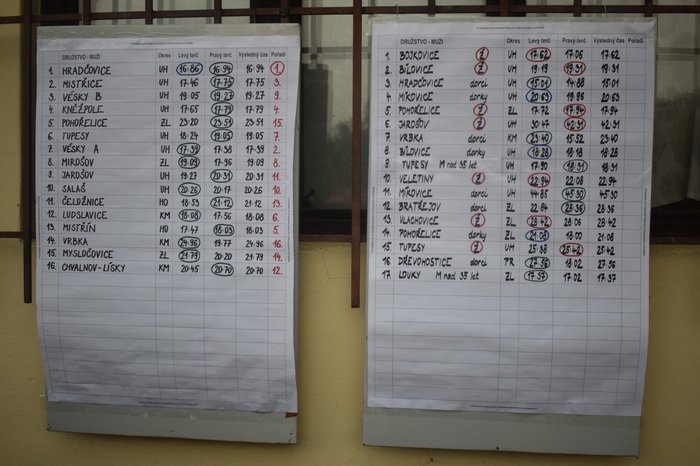 DRUŽSTVO - MUŽI Okres Levý terč Pravý terč Výsledný čas Pořadí
1. HRADČOVICE UH 16·86 16·94 16·94 1.
2. MISTŘICE UH 17·46 17·75 17·75 3.
3. VÉSKY B UH 19·05 19·27 19·27 9.
4. KNĚŽPOLE UH 17·65 17·79 17·79 4.
5. POHOŘELICE ZL 23·20 23·51 23·51 15.
6. TUPESY UH 18·24 19·05 19·05 7.
7. VÉSKY A UH 17·39 17·38 17·39 2.
8. MIROŠOV ZL 19·09 17·56 19·09 8.
9. JAROŠOV UH 19·27 20·31 20·31 11.
10. SALAŠ UH 20·26 20·17 20·26 10.
11. ČELOŽNICE HO 18·59 21·12 21·12 13.
12. LUDSLAVICE KM 18·08 17·56 18·08 6.
13. MISTŘÍN HO 17·47 18·03 18·03 5.
14. VRBKA KM 24·96 19·77 24·96 16.
15. MYSLOČOVICE ZL 21·79 20·20 21·79 14.
16. CHVALNOV-LÍŠKY KM 20·45 20·70 20·70 12.
DRUŽSTVO - MUŽI Okres Levý terč Pravý terč Výsledný čas Pořadí
1. BOJKOVICE Ž UH 17·62 17·06 17·62
2. BÍLOVICE Ž UH 19·19 19·31 19·31
3. HRADČOVICE dorci UH 15·01 14·88 15·01
4. MÍKOVICE dorky UH 20·63 19·86 20·63
5. POHOŘELICE Ž ZL 17·72 17·94 17·94
6. JAROŠOV Ž UH 30·47 42·91 42·91
7. VRBKA dorci KM 23·40 15·52 23·40
8. BÍLOVICE dorky UH 18·28 18·18 18·28
9. TUPESY M nad 35 let UH 17·90 18·31 18·31
10. VELETINY Ž UH 22·94 22·08 22·94
11. MÍKOVICE dorci UH 44·85 45·30 45·30
12. BRATŘEJOV dorci ZL 22·84 28·36 28·36
13. VLACHOVICE Ž ZL 28·42 28·06 28·42
14. POHOŘELICE dorky ZL 21·08 18·00 21·08
15. TUPESY Ž UH 25·38 25·42 25·42
16. DŘEVOHOSTICE dorci PR 27·56 18·02 27·56
17. LOUKY M nad 35 let ZL 17·37 17·02 17·37